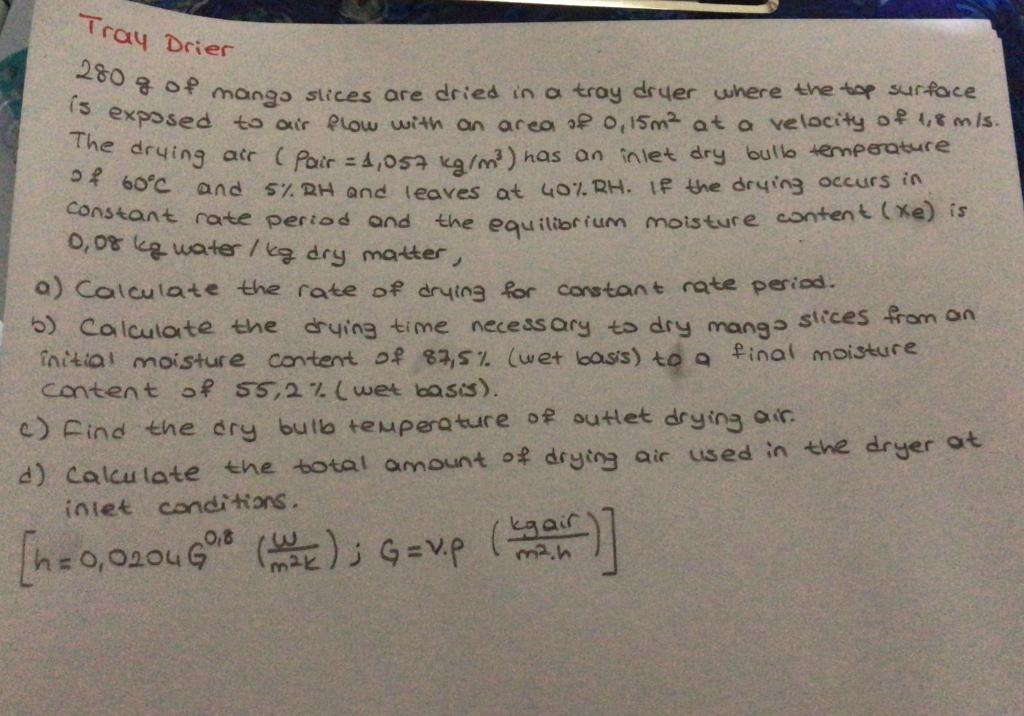 Tray Drier
280 g of mango slices are dried in a tray dryer where the top surface
is exposed to air flow with an area of 0,15m² at a velocity of 1,8 m/s.
The drying air (ρair = 1,057 kg/m³) has an inlet dry bulb temperature
of 60°C and 5% RH and leaves at 40% RH. If the drying occurs in
constant rate period and the equilibrium moisture content (Xe) is
0,08 kg water / kg dry matter,
a) Calculate the rate of drying for constant rate period.
b) Calculate the drying time necessary to dry mango slices from an
initial moisture content of 87,5% (wet basis) to a final moisture
content of 55,2% (wet basis).
c) Find the dry bulb temperature of outlet drying air.
d) Calculate the total amount of drying air used in the dryer at
inlet conditions.
[h = 0,0204 G^0,8 (W/m²K) ; G = v.ρ (kg air/m².h)]